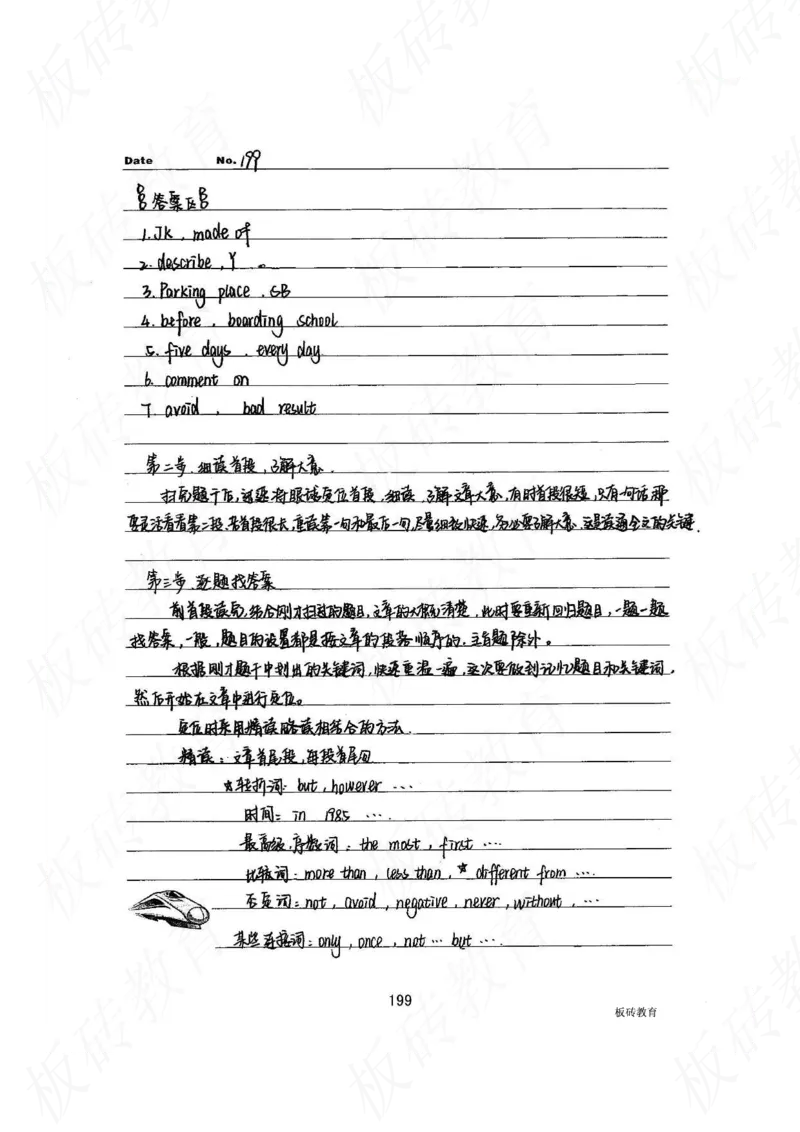 Date No. 199
答案区
1. Jk, made of
2. describe, Y 。
3. Parking place, GB
4. before, boarding school
5. five days, every day
6. comment on
7. avoid, bad result
第二步 细读首段,了解大意.
扫完题干后,这要将眼球定位首段,细读,了解文章大意,有时首段很短,只有一句话,那
要灵活看看第二段,若首段很长,重读第一句和最后一句,尽量细致快速,务必要了解大意,这是读通全文的关键.
第三步 逐题找答案
前首段读完,结合刚才扫过的题目,文章的大意清楚,此时要重新回归题目,一题一题
找答案,一般,题目的设置都是按文章的段落顺序的,主旨题除外。
根据刚才题干中划出的关键词,快速重温一遍,这次要做到记忆题目和关键词,
然后开始在文章中进行定位。
定位时采用精读略读相结合的方法.
精读:文章首尾段,每段首尾句
☆转折词: but, however ...
时间: in 1985 ....
最高级,序数词: the most, first ...
比较词: more than, less than, ☆ different from ...
否定词: not, avoid, negative, never, without, ...
某些连接词: only, once, not ... but ...
199
板砖教育
板砖教育